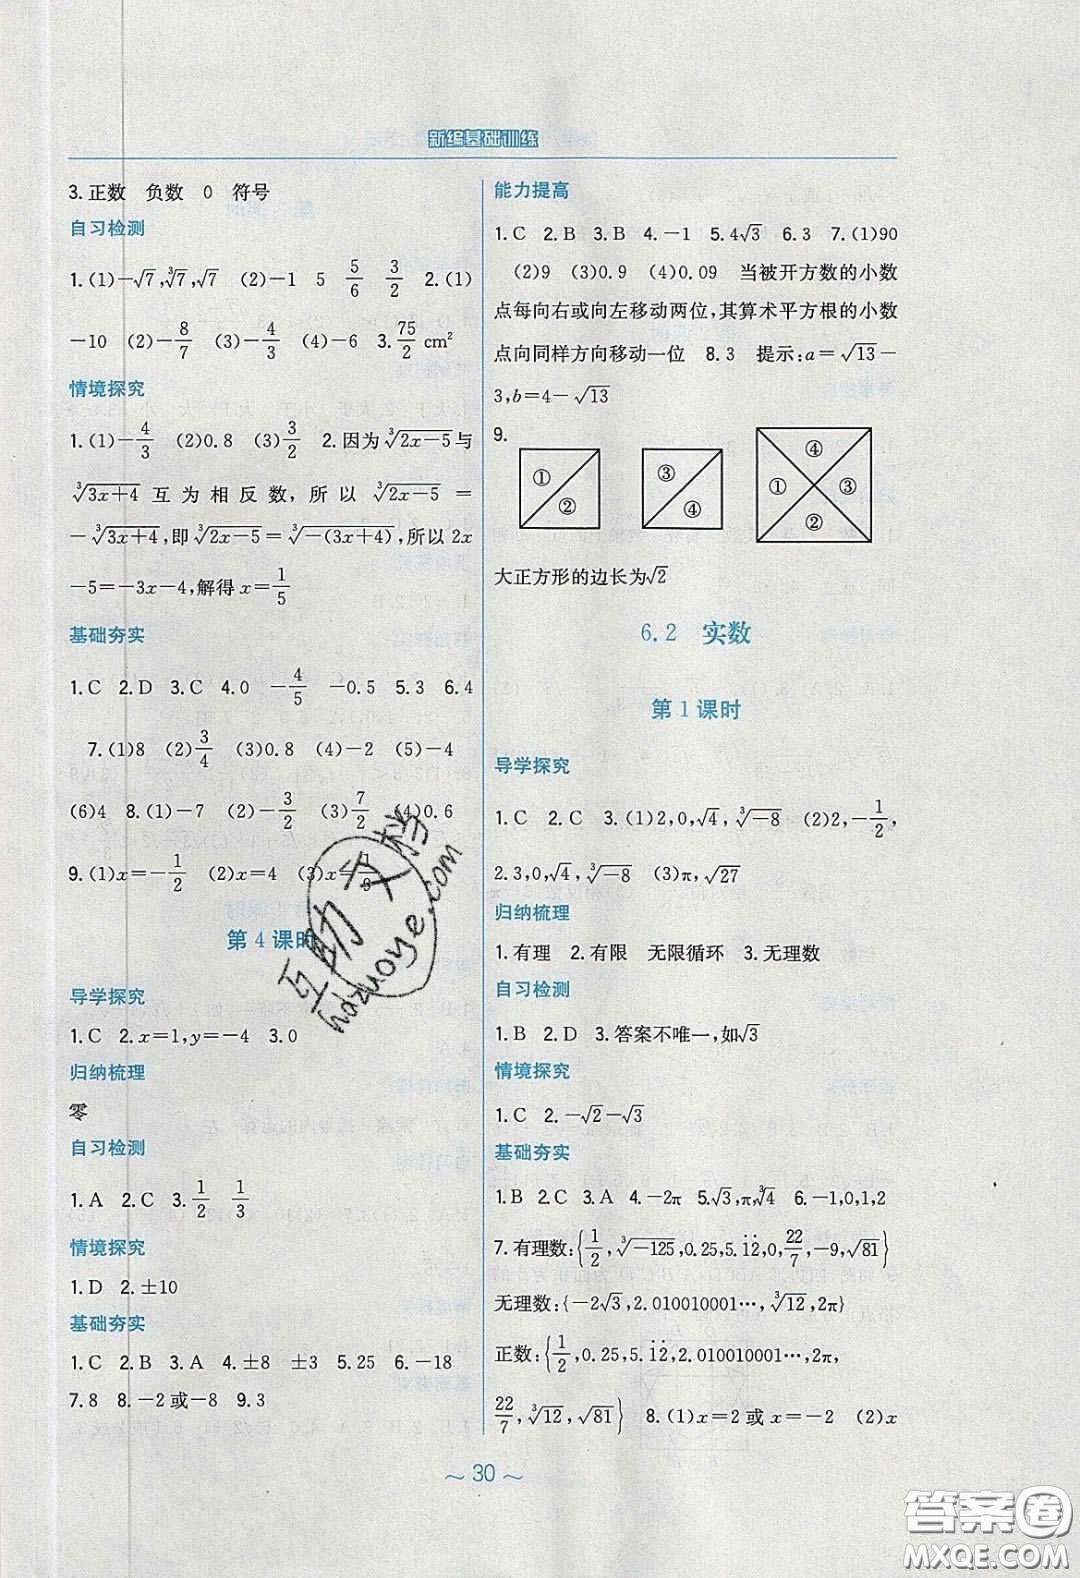 新编基础训练
3.正数　负数　0　符号
自习检测
1.(1)-√7,∛7,√7　(2)-1　5　5/6　3/2　2.(1)
-10　(2)-8/7　(3)-4/3　(4)-6　3.75/2 cm²
情境探究
1.(1)-4/3　(2)0.8　(3)3/2　2.因为∛(2x-5)与
∛(3x+4)互为相反数,所以∛(2x-5)=
-∛(3x+4),即∛(2x-5)=∛(-(3x+4)),所以2x
-5=-3x-4,解得x=1/5
基础夯实
1.C　2.D　3.C　4.0　-4/5　-0.5　5.3　6.4
7.(1)8　(2)3/4　(3)0.8　(4)-2　(5)-4
(6)4　8.(1)-7　(2)-3/2　(3)7/2　(4)0.6
9.(1)x=-1/2　(2)x=4　(3)x=
第4课时
导学探究
1.C　2.x=1,y=-4　3.0
归纳梳理
零
自习检测
1.A　2.C　3.1/2　1/3
情境探究
1.D　2.±10
基础夯实
1.C　2.B　3.A　4.±8　±3　5.25　6.-18
7.8　8.-2或-8　9.3
能力提高
1.C　2.B　3.B　4.-1　5.4√3　6.3　7.(1)90
(2)9　(3)0.9　(4)0.09　当被开方数的小数
点每向右或向左移动两位,其算术平方根的小数
点向同样方向移动一位　8.3　提示:a=√13-
3,b=4-√13
9.
① ② ③ ④ ④ ① ③ ②
大正方形的边长为√2
6.2　实数
第1课时
导学探究
1.C　2.C　3.(1)2,0,√4,∛-8　(2)2,-1/2,
2.3,0,√4,∛-8　(3)π,√27
归纳梳理
1.有理　2.有限　无限循环　3.无理数
自习检测
1.B　2.D　3.答案不唯一,如√3
情境探究
1.C　2.-√2-√3
基础夯实
1.B　2.C　3.A　4.-2π　5.√3,π,∛4　6.-1,0,1,2
7.有理数:{1/2,∛-125,0.25,5.1̇2̇,0,22/7,-9,√81}
无理数:{-2√3,2.010010001…,∛12,2π}
正数:{1/2,0.25,5.1̇2̇,2.010010001…,2π,
22/7,∛12,√81}　8.(1)x=2或x=-2　(2)x
~ 30 ~
互助文档
hdzuoye.com
答案圈
MXQE.COM